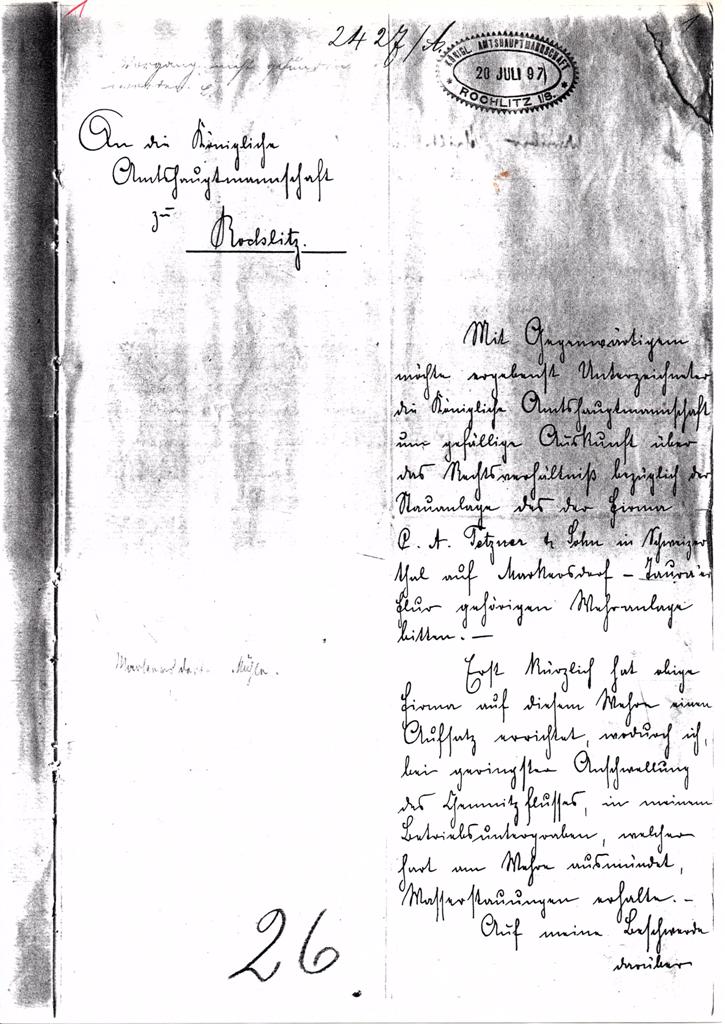 1
1
2427/A.
KÖNIGL. AMTSHAUPTMANNSCHAFT
20 JULI 97
ROCHLITZ I/S.
An die Königliche
Amtshauptmannschaft
zu
Rochlitz.
Mit Gegenwärtigem
möchte ergebenst Unterzeichneter
die Königliche Amtshauptmannschaft
um gefällige Auskunft über
das Rechtsverhältniß bezüglich der
Stauanlage des der Firma
C. A. Tetzner & Sohn in Schweizer
thal auf Markersdorf - Taura'er
Flur gehörigen Wehranlage
bitten. —
Erst kürzlich hat obige
Firma auf diesem Wehre einen
Aufsatz errichtet, wodurch ich,
bei geringster Anschwellung
des Chemnitzflusses, in meinem
Betriebsuntergraben, welcher
hart am Wehre ausmündet,
Wasserstauungen erhalte. -
Auf meine Beschwerde
darüber
26